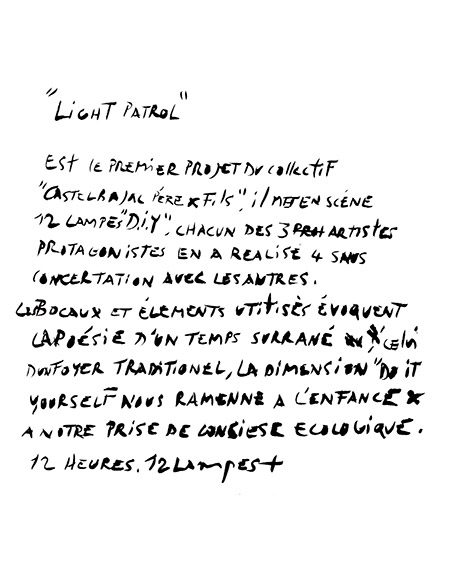 "LIGHT PATROL"
EST LE PREMIER PROJET DU COLLECTIF
"CASTELBAJAC PÈRE & FILS", il MET EN SCÈNE
12 LAMPES "D.I.Y", CHACUN DES 3 ARTISTES
PROTAGONISTES EN A REALISÉ 4 SANS
CONCERTATION AVEC LES AUTRES.
LES BOCAUX ET ÉLEMENTS UTILISÈS ÉVOQUENT
LA POÉSIE D'UN TEMPS SURRANÉ CELUI
D'UN FOYER TRADITIONEL, LA DIMENSION "DO IT
YOURSELF" NOUS RAMENNE A L'ENFANCE &
A NOTRE PRISE DE ECOLOGIQUE.
12 HEURES. 12 LAMPES +